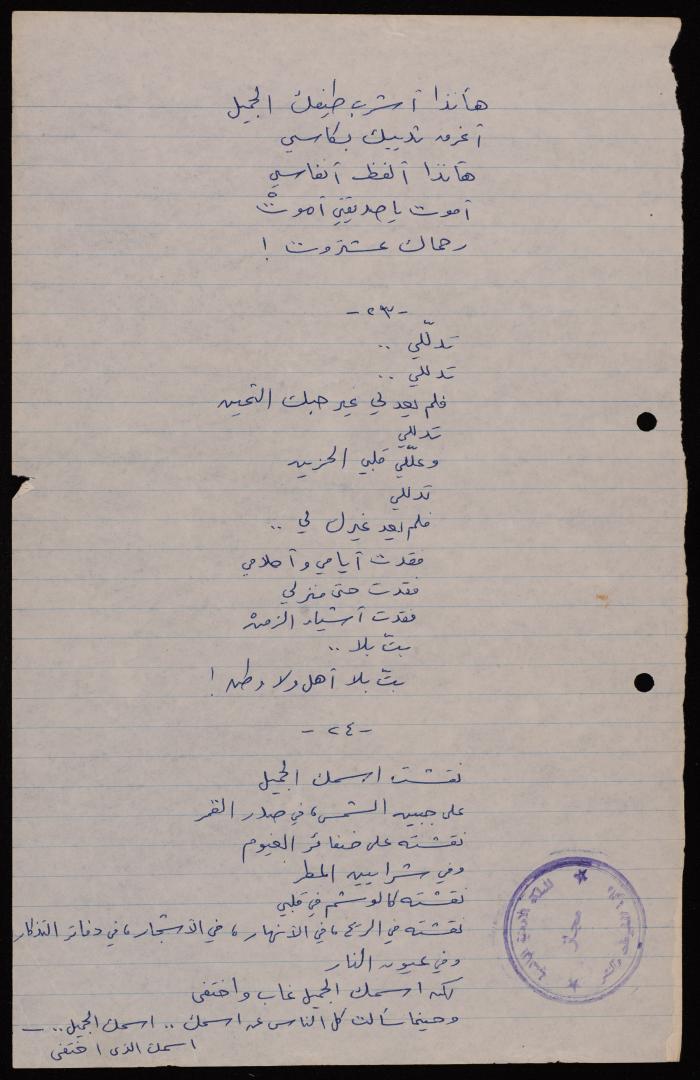 هأنذا أشرب طيفك الجميل
أغرق ثدييك بكاسي
هأنذا ألفظ أنفاسي
أموت يا صديقتي أموتْ
رحماك عشتروت !
- ٢٣ -
تدلّلي ..
تدللي ..
فلم يعد لي غير حبك الثمين
تدللي
وعلّلي قلبي الحزين
تدللي
فلم يعد غيرك لي ..
فقدت أيامي وأحلامي
فقدت حتى منزلي
فقدت أشياء الزمنْ
بتّ بلا ..
بتّ بلا أهل ولا وطن !
- ٢٤ -
نقشت اسمك الجميل
على جبين الشمس، في صدر القمر
نقشته على ضفائر الغيوم
وفي شرايين المطر
نقشته كالوشم في قلبي
نقشته في الريح، في الأنهار، في الأشجار، في دفاتر التذكار
وفي عيون النار
لكن اسمك الجميل غاب واختفى
وحينما سألت كل الناس عن اسمك .. اسمك الجميل .. —
اسمك الذي اختفى
مجاز